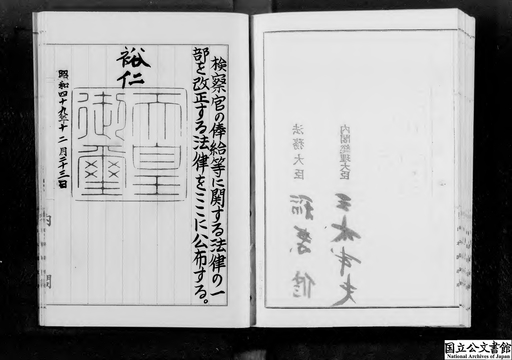 検察官の俸給等に関する法律の一
部を改正する法律をここに公布する。
裕仁
昭和四十九年十二月二十三日
天皇
御璽
内閣総理大臣
三木武夫
法務大臣
稲葉修
国立公文書館
National Archives of Japan